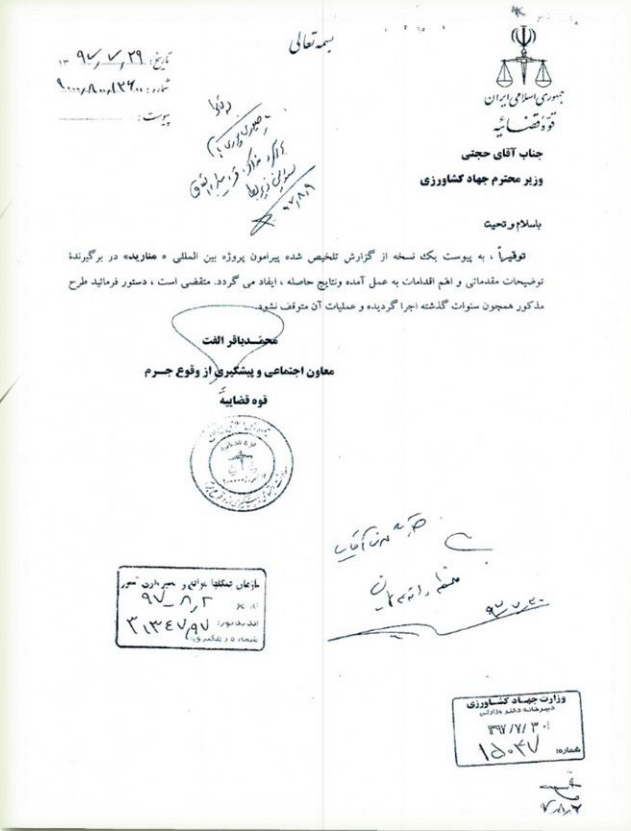 بسمه تعالی
جمهوری اسلامی ایران
قوه قضائیه
تاریخ: ۱۳۹۷/۷/۲۹
شماره: ۹۰۰۰/۸۰۰/۱۳۶۰۰
پیوست:
جناب آقای حجتی
وزیر محترم جهاد کشاورزی
باسلام و تحیت
توقیراً ، به پیوست یک نسخه از گزارش تلخیص شده پیرامون پروژه بین المللی « منارید» در برگیرندهٔ
توضیحات مقدماتی و اهم اقدامات به عمل آمده ونتایج حاصله ، ایفاد می گردد. متقضی است ، دستور فرمائید طرح
مذکور همچون سنوات گذشته اجرا گردیده و عملیات آن متوقف نشود.
محمدباقر الفت
معاون اجتماعی و پیشگیری از وقوع جرم
قوه قضاییه
۹۷/۸/۹
۹۷/۷/۳۰
سازمان جنگلها مراتع و آبخیزداری کشور
۹۷-۸-۲
۳۱۳۴۷/۹۷
وزارت جهاد کشاورزی
دبیرخانه دفتر وزارتی
۱۳۹۷/۷/۳۰
شماره: ۱۵۰۴۷